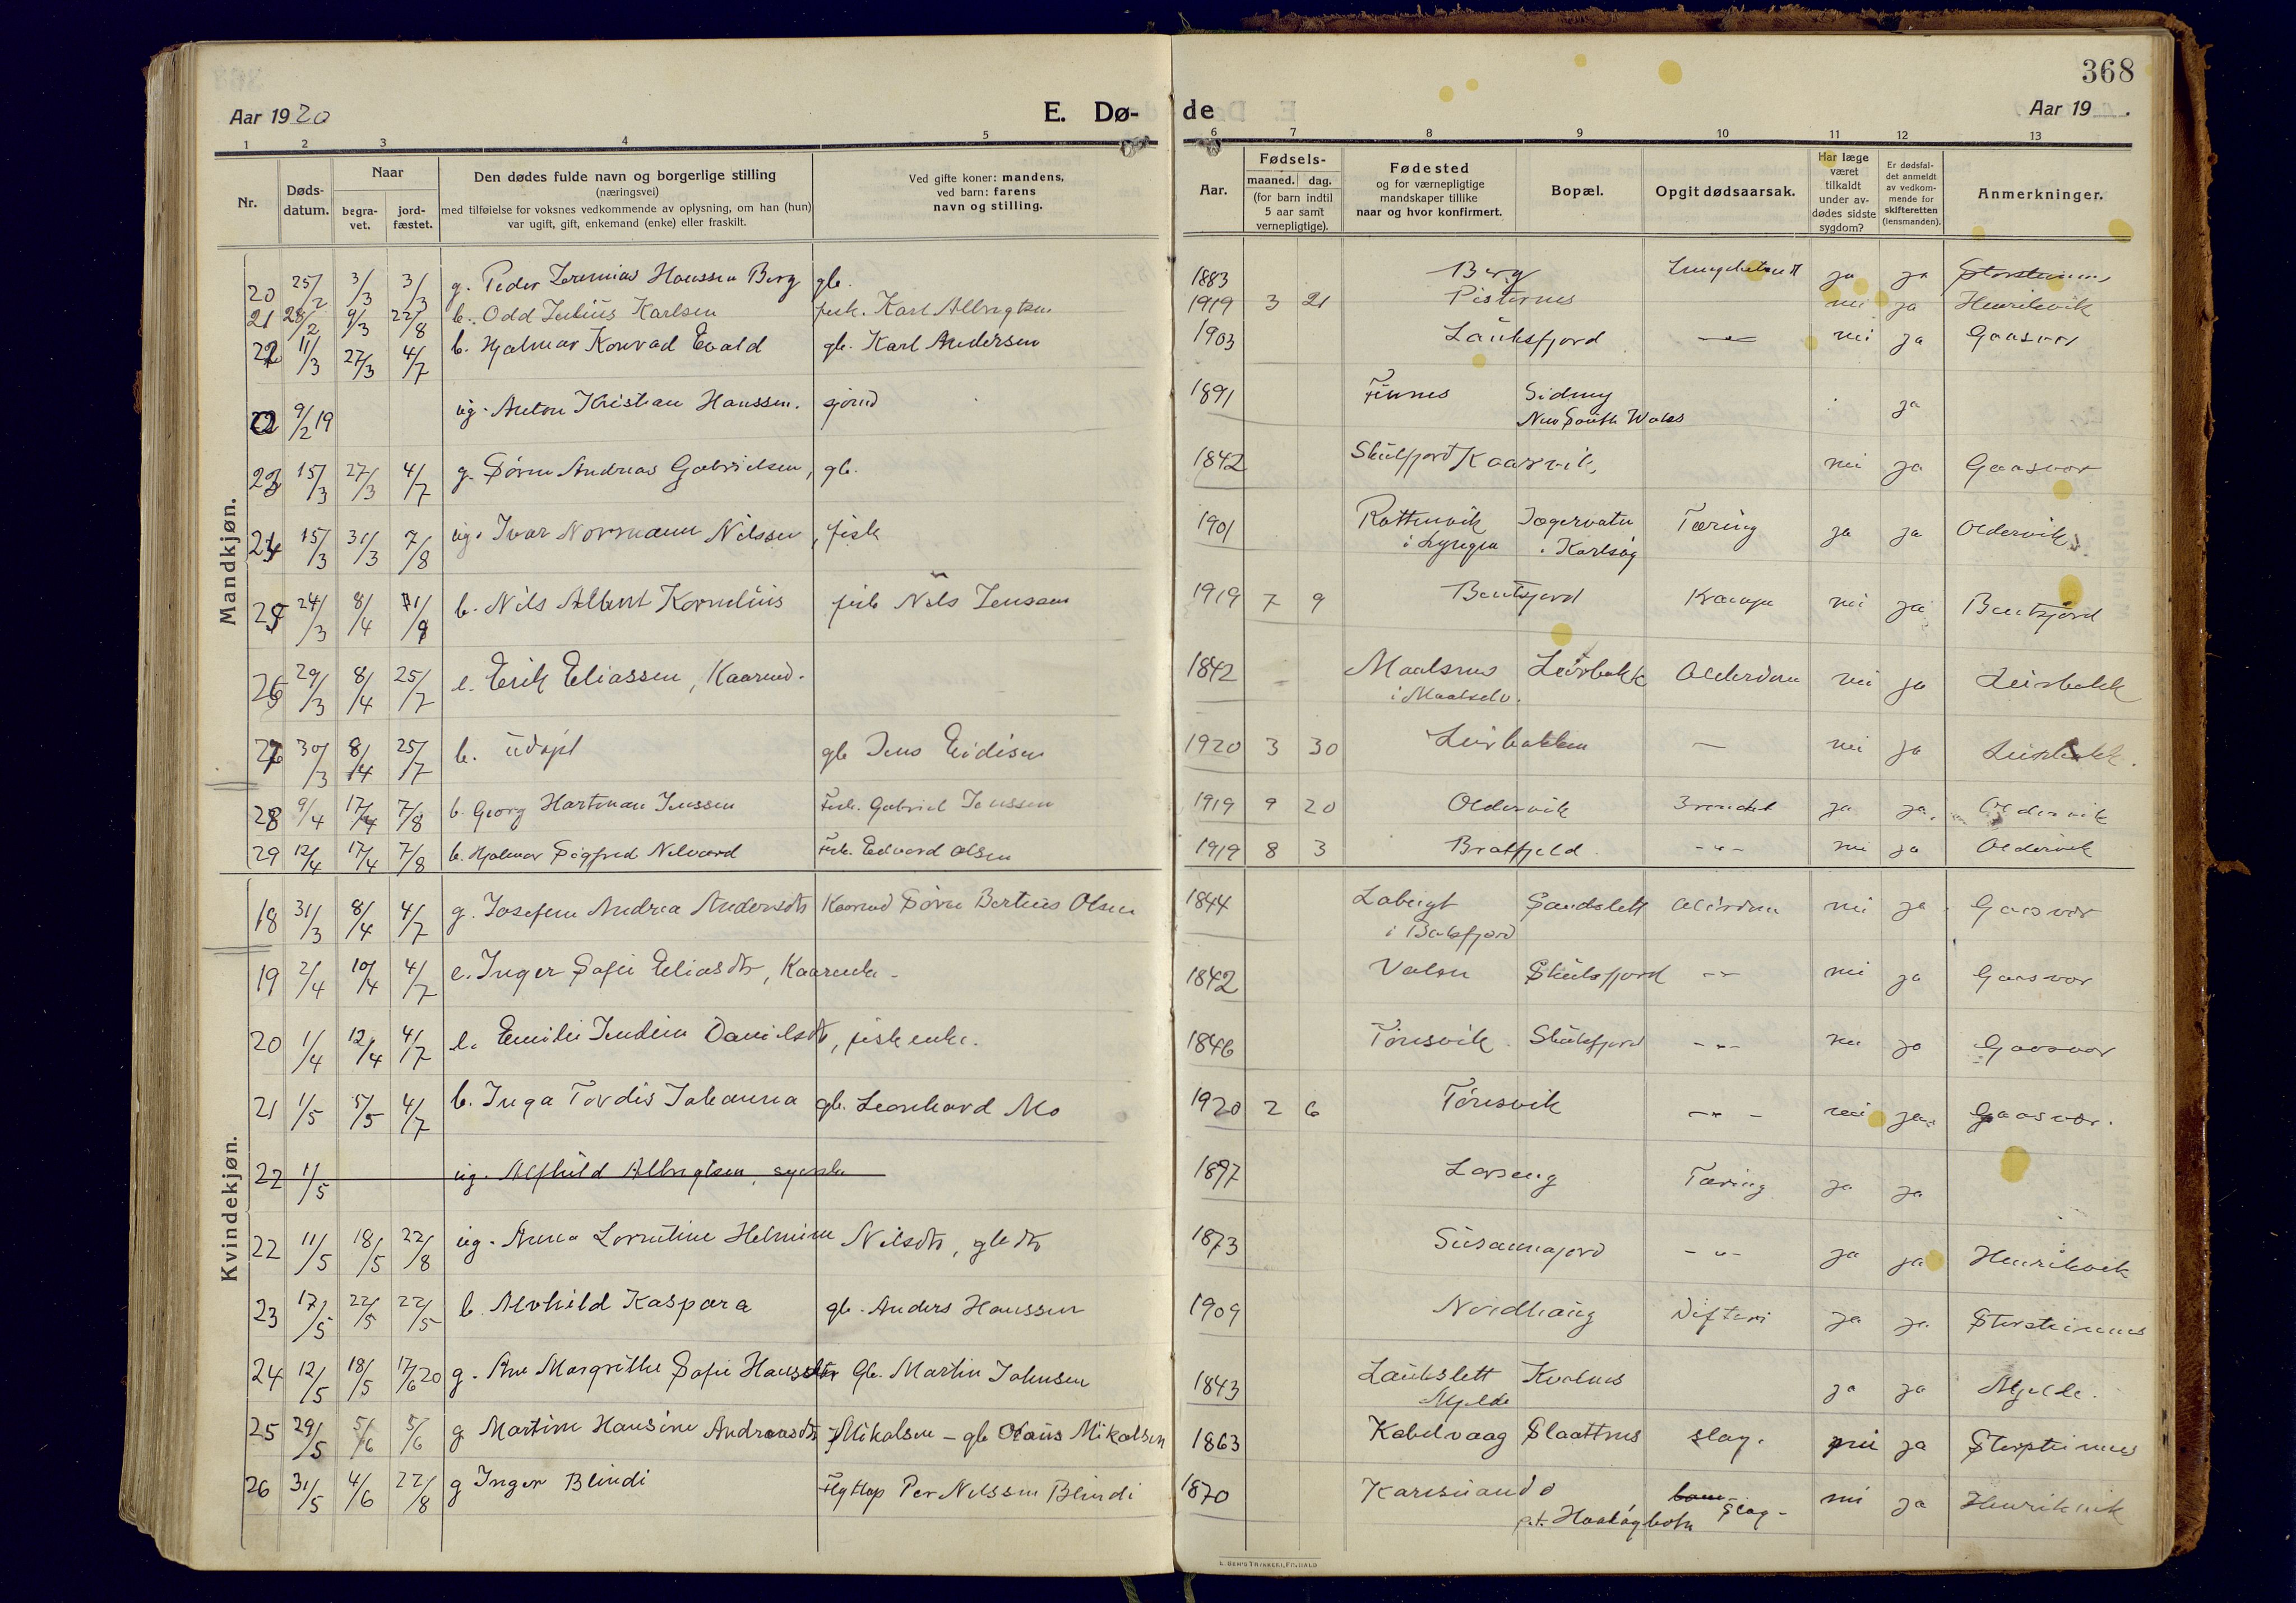 368
Aar 1920 E. Dø- de Aar 19 .
1 2 3 4 5 6 7 8 9 10 11 12 13
Nr.
Døds-
datum.
Naar
begra-
vet.
jord-
fæstet.
Den dødes fulde navn og borgerlige stilling
(næringsvei)
med tilføielse for voksnes vedkommende av oplysning, om han (hun)
var ugift, gift, enkemand (enke) eller fraskilt.
Ved gifte koner: mandens,
ved barn: farens
navn og stilling.
Aar.
Fødsels-
maaned. dag.
(for barn indtil
5 aar samt
vernepligtige).
Fødested
og for værnepligtige
mandskaper tillike
naar og hvor konfirmert.
Bopæl.
Opgit dødsaarsak.
Har læge
været
tilkaldt
under av-
dødes sidste
sygdom?
Er dødsfal-
det anmeldt
av vedkom-
mende for
skifteretten
(lensmanden).
Anmerkninger.
Mandkjøn.
20 25/2 3/3 3/3 g. Peder Jeremias Hanssen Berg gb. 1883 Berg ja ja
21 28/2 9/3 22/8 b. Odd Julius Karlsen fisk. Karl Albrigtsen 1919 3 21 nei ja Henrikvik
22 11/3 27/3 4/7 b. Hjalmar Konrad Evald gb. Karl Andersen 1903 Lauksfjord -"- nei ja Gaasvær
22 9/2 19 ug. Anton Kristian Hanssen. sjømd 1891 Finnes Sidney ja
New South Wales
23 15/3 27/3 4/7 g. Søren Andreas Gabrielsen, gb. 1842 Skulsfjord Kaarvik, nei ja Gaasvær
24 15/3 31/3 7/8 ug. Ivar Normann Nilssen, fisk 1901 Rottenvik Jægervatn Tæring ja ja Oldervik
i Lyngen i Karlsøy
25 24/3 8/4 b. Nils Albert Kornelius fisk Nils Jenssen 1919 7 9 Bentsjord Krampe nei ja Bentsjord
26 29/3 8/4 25/7 e. Erik Eliassen, Kaarmd. 1842 Maalsnes Leirbakk Alderdom nei ja Leirbakk
i Maalselv.
27 30/3 8/4 25/7 b. udøpt gb Jens Eidisen 1920 3 30 Leirbakken - nei ja Leirbakk.
28 9/4 17/4 7/8 b. Georg Hartman Jenssen Fisk. Gabriel Jenssen 1919 9 20 Oldervik ja ja. Oldervik
29 12/4 17/4 7/8 b. Hjalmar Sigfred Nelvard Fisk. Edvard Olsen 1919 8 3 Bratfjeld -"- nei ja Oldervik
Kvindekjøn.
18 31/3 8/4 4/7 g. Josefine Andrea Andersdtr Kaarmd Søren Bertius Olsen 1844 Sandslett Alderdom nei ja Gaasvær
i Balsfjord
19 2/4 10/4 4/7 e. Inger Sofie Eliasdtr, Kaarenke - 1842 Valen Skulsfjord -"- nei ja Gaasvær
20 1/4 12/4 4/7 e. Emilie Jendine Danielsdtr, fisk enke. 1846 Tønsvik. Skulsfjord -"- nei ja Gaasvær
21 1/5 5/5 4/7 b. Inga Tordis Johanna gb. Leonhard Mo 1920 2 6 Tønsvik -"- nei ja Gaasvær.
22 1/5 ug. Alfhild Albrigtsen, syerske 1897 Larseng Tæring ja ja
22 11/5 18/5 22/8 ug. Anna Lorentine Helmine Nilsdtr, gb dtr 1873 Susannajord -"- ja ja Henrikvik
23 17/5 22/5 22/5 b. Alvhild Kaspara gb. Anders Hanssen 1909 Nordhaug Difteri ja ja Storsteinnes
24 12/5 18/5 17/6 20 g. Ane Margrethe Sofie Hansdtr Gb. Martin Johnsen 1843 Laukslett Kvalnes ja ja Mjelde.
Mjelde
25 29/5 5/6 5/6 g Martine Hansine Andreasdtr Mikalsen - gb Olaus Mikalsen 1863 Kabelvaag Slaattnes slag. nei ja Storsteinnes
26 31/5 4/6 22/8 g Inger Blindi Flytlap Per Nilssen Blindi 1870 Karesuando Slag- nei ja Henrikvik
p.t.